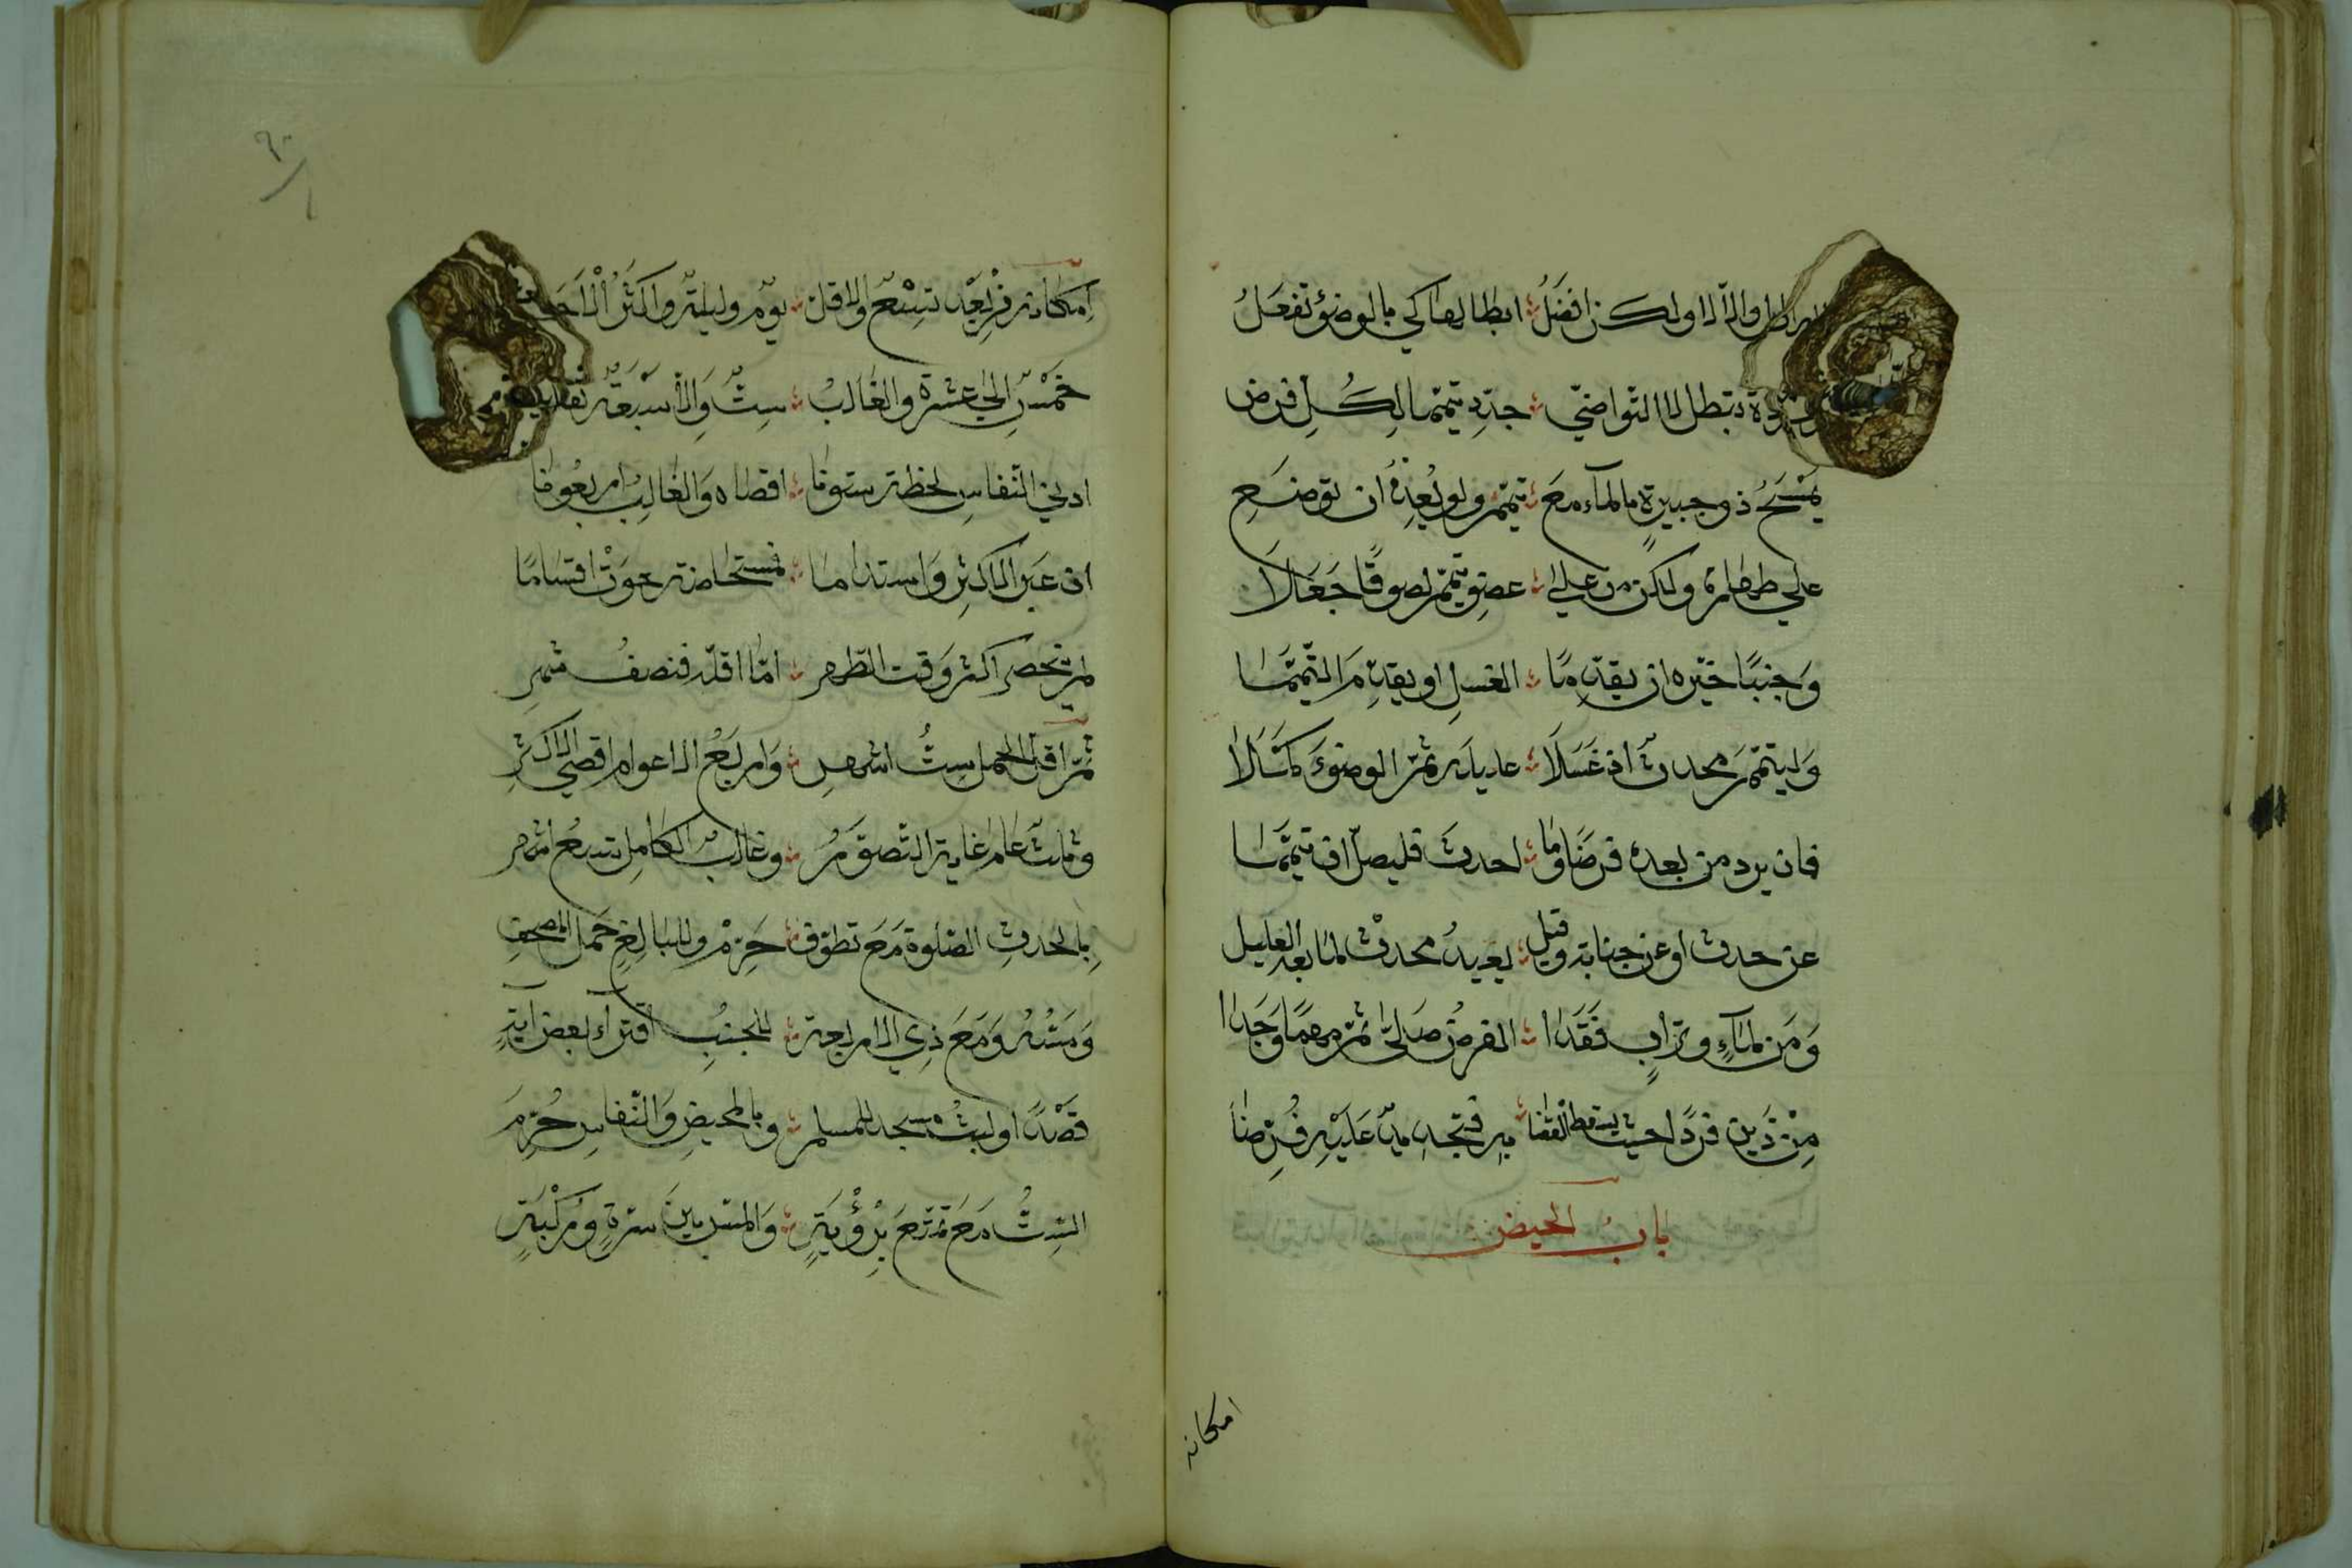 ابطل والا لا ولكن افضل ؛ ابطالها كي بالوضوء تفعل
وردة تبطل لا التوضي ؛ جدد تيمما لكل فرض
يمسح ذو جبيرة بالماء مع ؛ تيمم ولم يعد ان توضع
على طهارة ولكن من على ؛ عضو تيمم لصوقا جعلا
وجنبا خيره ان يقدما ؛ الغسل او يقدم التيمما
وليتيمم محدث اذ غسلا ؛ عليله ثم الوضوء كملا
فان يرد من بعده فرضا وما ؛ احدث فليصل ان تيمما
عن حدث او عن جنابة وقيل ؛ يعيد محدث لما بعد العليل
ومن لماء وتراب فقدا ؛ الفرض صلى ثم مهما وجدا
من ذين فردا حيث يسقط القضا ؛ به فتجديد عليه فرضا
باب الحيض
امكانه
امكانه من بعد تسع والاقل ؛ يوم وليلة واكثر الاجل
خمس الى عشرة والغالب ؛ ست والا سبعة تقارب
ادنى النفاس لحظة ستونا ؛ اقصاه والغالب اربعونا
ان عبر الاكثر واستداما ؛ فمستحاضة حوت اقساما
لم ينحصر اكثر وقت الطهر ؛ اما اقله فنصف شهر
ثم اقل الحمل ست اشهر ؛ واربع الاعوام اقصى الاكثر
وثلث عام غاية التصور ؛ وغالب الكامل تسع اشهر
بالحدث الصلوة مع تطوف ؛ حرم وللبالغ حمل المصحف
ومسه ومع ذي الاربعة ؛ للجنب اقتراء بعض آية
قصدا ولبث مسجد للمسلم ؛ وبالمحيض والنفاس حرم
الست مع تمتع برؤية ؛ والمس بين سرة وركبة